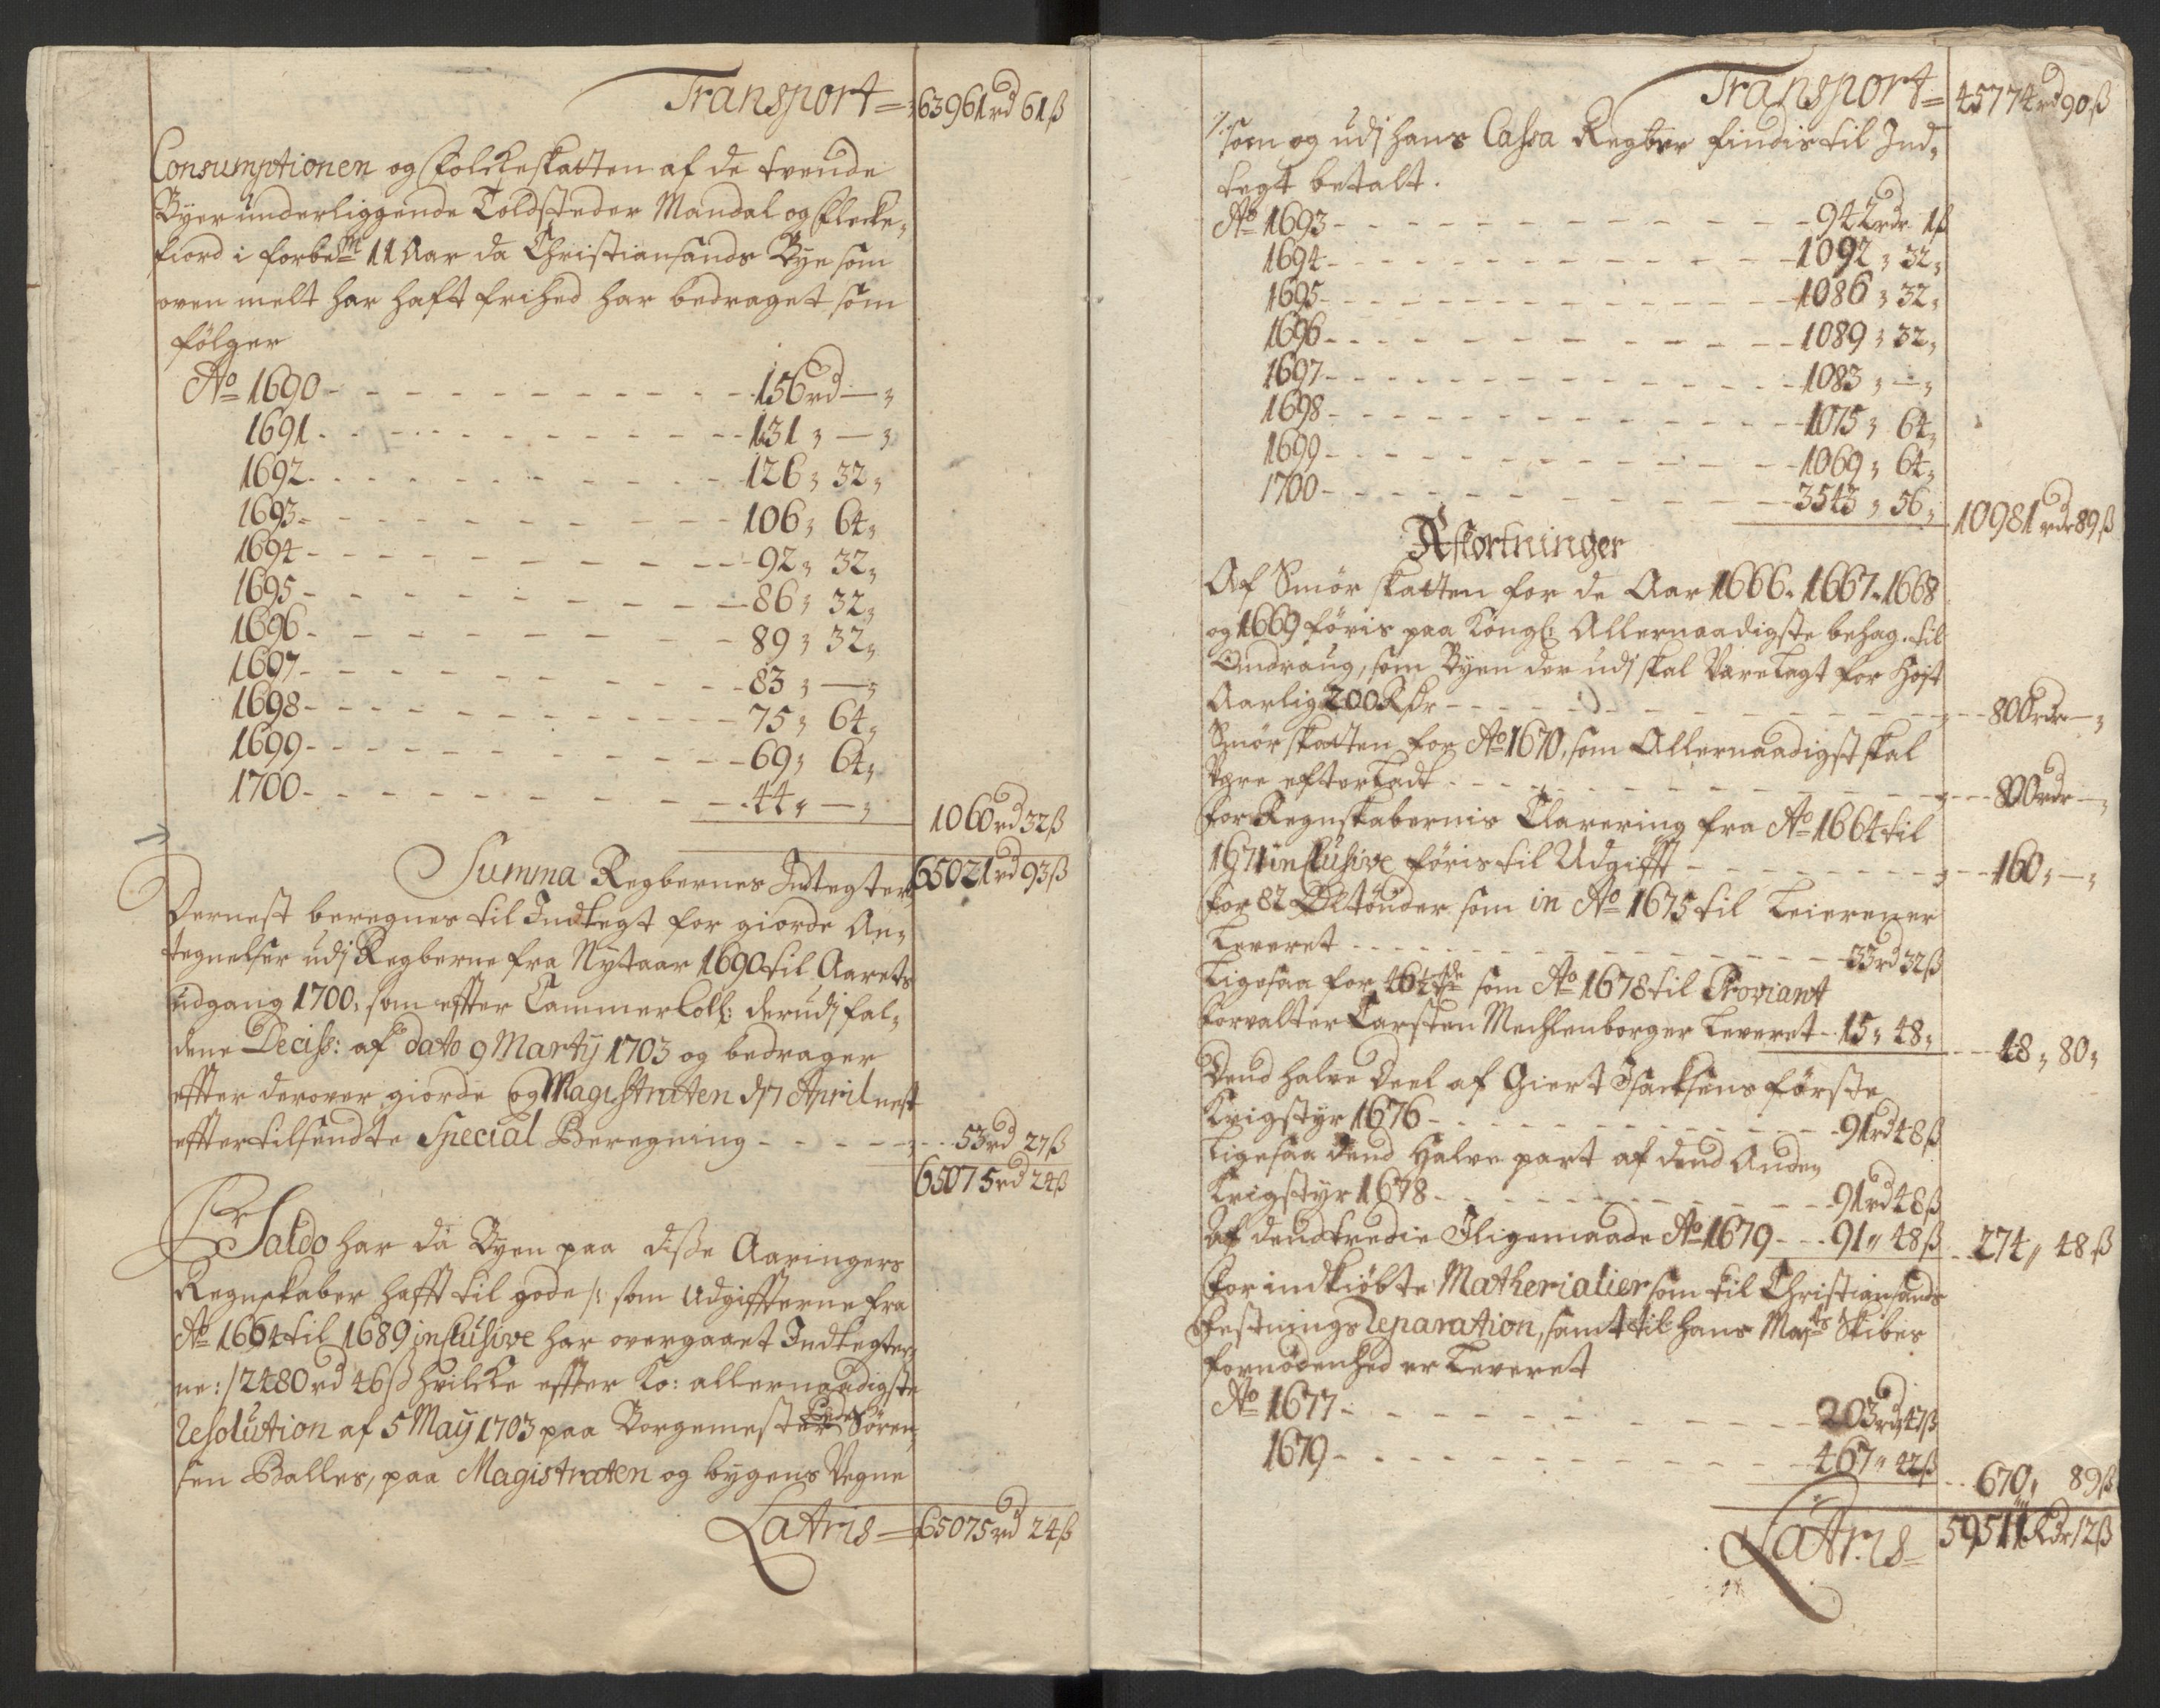 Transport = 63961 rd 61 ß
Consumptionen og Folckeskatten af de tvende
Byer underliggende Toldsteder Mandal og Flecke-
fiord i forbem.te 11 Aar da Christiansands Bye som
oven melt har haft frihed har bedraget som
følger
Ao 1690 - 156 rd — „
1691 - 131 „ — „
1692 - 126 „ 32 „
1693 - 106 „ 64 „
1694 - 92 „ 32 „
1695 - 86 „ 32 „
1696 - 89 „ 32 „
1697 - 83 „ — „
1698 - 75 „ 64 „
1699 - 69 „ 64 „
1700 - 44 „ — „ 1060 rd 32 ß
Summa Regbernes Indtegter 65021 rd 93 ß
Dernest beregnes til Indtegt for giorde An-
tegnelser udj Regberne fra Nytaar 1690 til Aarets
udgang 1700, som effter Cammer Coll: derudj fal-
dene Deciss: af dato 9 Martij 1703 og bedrager
effter derover giorde og Magistraten d 7 April nest
effter tilsendte Special Beregning - 53 rd 27 ß
65075 rd 24 ß
Pr Saldo har da Byen paa disse Aaringers
Regnskaber hafft til gode /: som Udgiffterne fra
Ao 1664 til 1689 inclusive har overgaaet Indtegter-
ne :/ 2480 rd 46 ß hvilcke effter Ko: allernaadigste
Resolution af 5 Maij 1703 paa Borgemester Peder Søren-
sen Balles, paa Magistraten og bygens Vegne
Latris = 65075 rd 24 ß
Transport = 45774 rd 90 ß
/: som og udj hans Cassa Regber findis til Ind-
tegt betalt.
Ao 1693 - 942 rdr 1 ß
1694 - 1092 „ 32 „
1695 - 1086 „ 32 „
1696 - 1089 „ 32 „
1697 - 1083 „ — „
1698 - 1075 „ 64 „
1699 - 1069 „ 64 „
1700 - 3543 „ 56 „ 10981 rdr 89 ß
Afkortninger
Af Smør skatten for de Aar 1666. 1667. 1668
og 1669 føris paa Kongl: Allernaadigste behag. til
Omdraug, som Byen der udj skal Være Lagt for høyt
Aarlig 200 Rdr - 800 rdr — „
Smør skatten for Ao 1670, som Allernaadigst skal
Være efterladt - 800 rdr — „
for Regnskabernis Clarering fra Ao 1664 til
1671 inclusive føris til Udgifft - 160 „ — „
for 82 Øltønder som in Ao 1675 til Leierener
Leveret - 33 rd 32 ß
Ligesaa for 46 tde som Ao 1678 til Proviant
forvalter Carsten Mechlenborger Leveret - 15 „ 48 „ 48 „ 80 „
Dend halve Deel af Giert Isachsens første
Krigstyr 1676 - 91 rd 48 ß
Ligesaa dend Halve part af dend Anden
Krigstyr 1678 - 91 rd 48 ß
Af dend tredie Iligemaade Ao 1679 - 91 „ 48 ß 274 „ 48 ß
for indkiøbte Matherialier som til Christiansands
festnings Reparation, samt til hans Mayts Skibes
fornødenhed er Leveret
Ao 1677 - 203 rdr 47 ß
1679 - 467 „ 42 ß 670 „ 89 ß
Latris = 59511 Rdr 12 ß